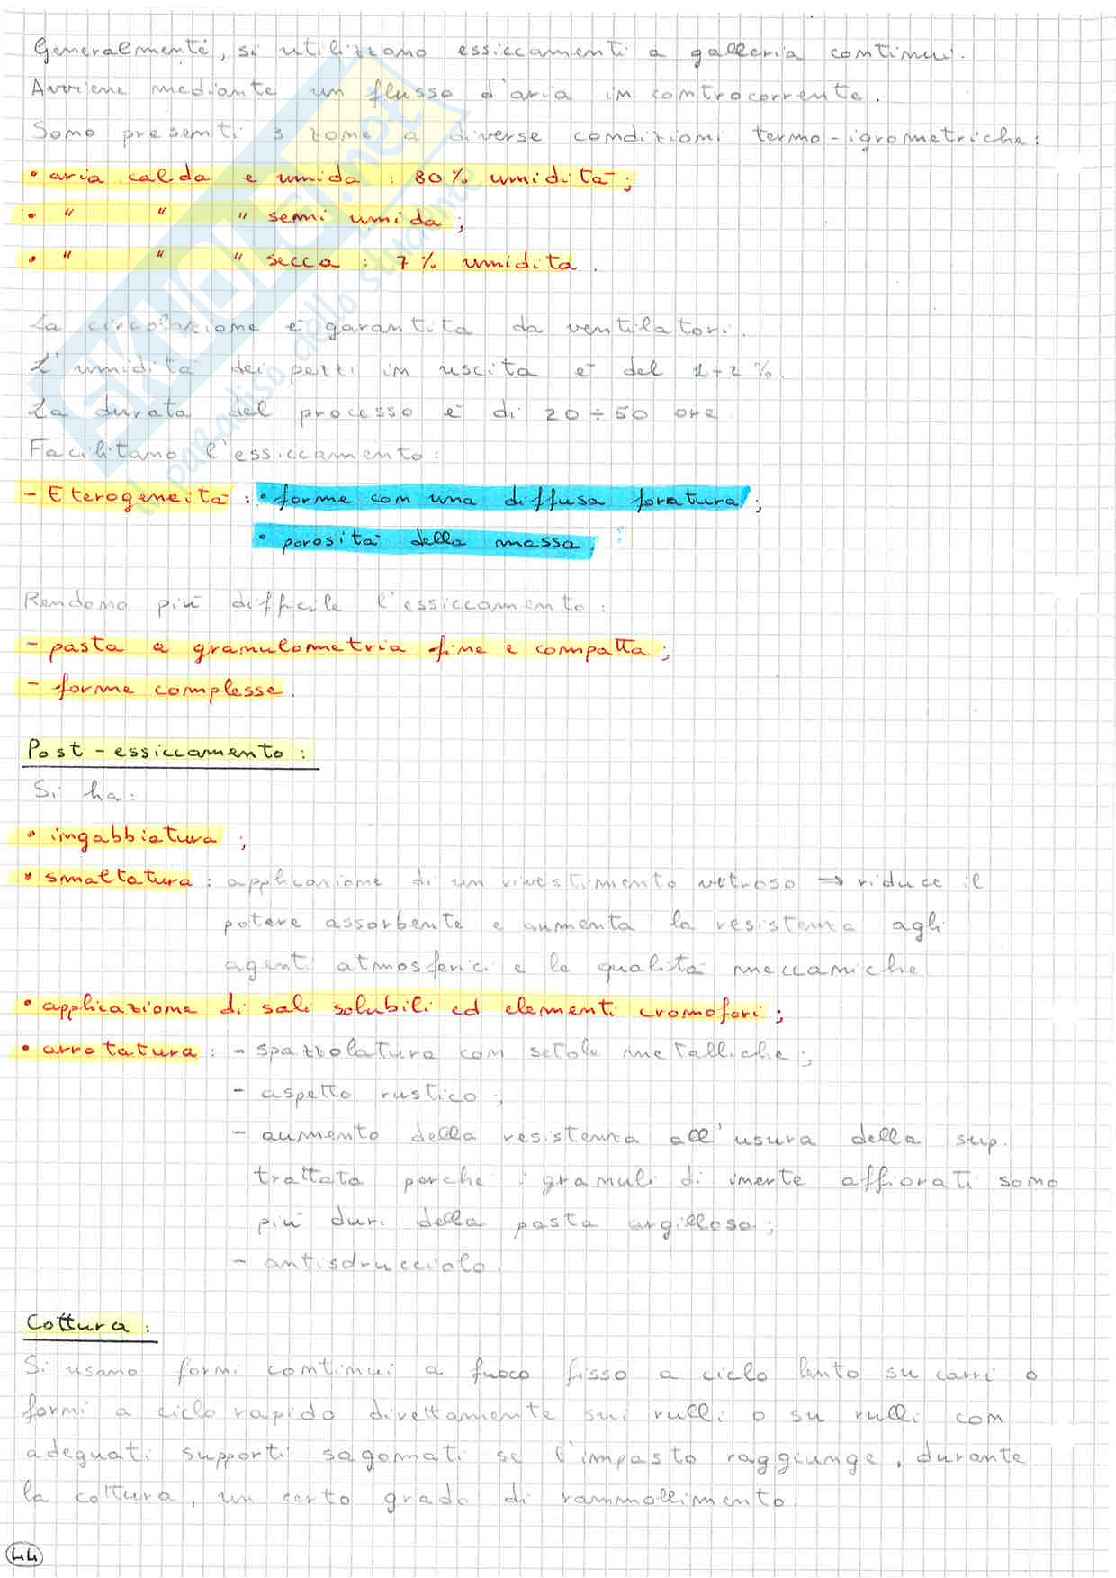 Generalmente, si utilizzano essiccamenti a galleria continui.
Avviene mediante un flusso d'aria in controcorrente.
Sono presenti 3 zone a diverse condizioni termo-igrometriche:
• aria calda e umida : 80% umidità;
• " " " semi umida;
• " " " secca : 7% umidità.
La circolazione è garantita da ventilatori.
L'umidità dei pezzi in uscita è del 1÷2%.
La durata del processo è di 20÷50 ore
Facilitano l'essiccamento:
- Eterogeneità : • forme con una diffusa foratura;
• porosità della massa.
Rendono più difficile l'essiccamento:
- pasta a granulometria fine e compatta;
- forme complesse.
Post-essiccamento:
Si ha:
• ingabbiatura;
• smaltatura: applicazione di un rivestimento vetroso → riduce il
potere assorbente e aumenta la resistenza agli
agenti atmosferici e le qualità meccaniche
• applicazione di sali solubili ed elementi cromofori;
• arrotatura: - spazzolatura con setole metalliche;
- aspetto rustico;
- aumento della resistenza all'usura della sup.
trattata perché i granuli di inerte affiorati sono
più duri della pasta argillosa;
- antisdrucciolo.
Cottura:
Si usano forni continui a fuoco fisso a ciclo lento su carri o
forni a ciclo rapido direttamente sui rulli o su rulli con
adeguati supporti sagomati se l'impasto raggiunge, durante
la cottura, un certo grado di rammollimento.
44
SKUOLA.net
il paradiso dello studente